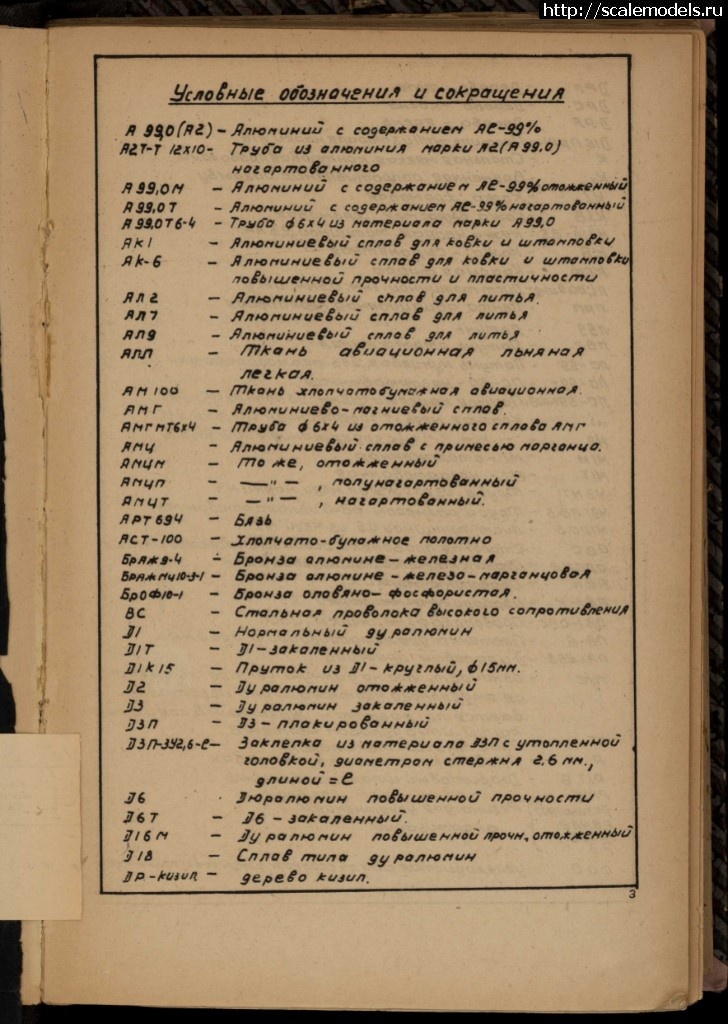 http://scalemodels.ru
Условные обозначения и сокращения
А 99,0 (А2) - Алюминий с содержанием Аℓ-99%
А2Т-Т 12х10- Труба из алюминия марки А2(А 99,0)
нагартованного
А 99,0М - Алюминий с содержанием Аℓ-99% отожженный
А 99,0 Т - Алюминий с содержанием Аℓ-99% нагартованный
А 99,0Т6-4 - Труба ф 6х4 из материала марки А99,0
АК1 - Алюминиевый сплав для ковки и штамповки
АК-6 - Алюминиевый сплав для ковки и штамповки
повышенной прочности и пластичности
АЛ2 - Алюминиевый сплав для литья.
АЛ7 - Алюминиевый сплав для литья
АЛ9 - Алюминиевый сплав для литья
АЛЛ - Ткань авиационная льняная
легкая.
АМ100 - Ткань хлопчатобумажная авиационная.
АМГ - Алюминиево-магниевый сплав.
АМГМТ6х4 - Труба ф 6х4 из отожженного сплава АМГ
АМЦ - Алюминиевый сплав с примесью марганца.
АМЦМ - То же, отожженный
АМЦП - —"— , полунагартованный
АМЦТ - —"— , нагартованный.
АРТ 694 - Бязь
АСТ-100 - Хлопчато-бумажное полотно
БрАЖ9-4 - Бронза алюмине-железная
БрАЖМЦ10-3-1 - Бронза алюмине-железо-марганцовая
БрОФ10-1 - Бронза оловяно-фосфористая.
ВС - Стальная проволока высокого сопротивления
Д1 - Нормальный дуралюмин
Д1Т - Д1-закаленный
Д1К15 - Пруток из Д1-круглый, ф 15мм.
Д2 - Дуралюмин отожженный
Д3 - Дуралюмин закаленный
Д3П - Д3-плакированный
Д3П-3У2,6-ℓ- Заклепка из материала Д3П с утопленной
головкой, диаметром стержня 2.6 мм.,
длиной = ℓ
Д6 - Дюралюмин повышенной прочности
Д6Т - Д6-закаленный.
Д16М - Дуралюмин повышенной прочн. отожженный
Д18 - Сплав типа дуралюмин
ДР-кизил - дерево кизил.
3